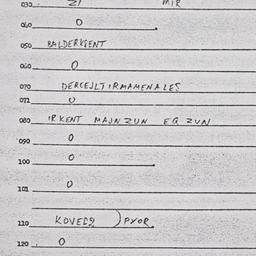 030. 21 MIR
040. 0
050 BALDERKIENT
060 0
070 DERCEJLTIRMAMENALES
071 0
080 IRKENT MAJNZUN EG ZUN
090 0
100 0
101 0
110 KOVEDS ) PXOR.
120 0